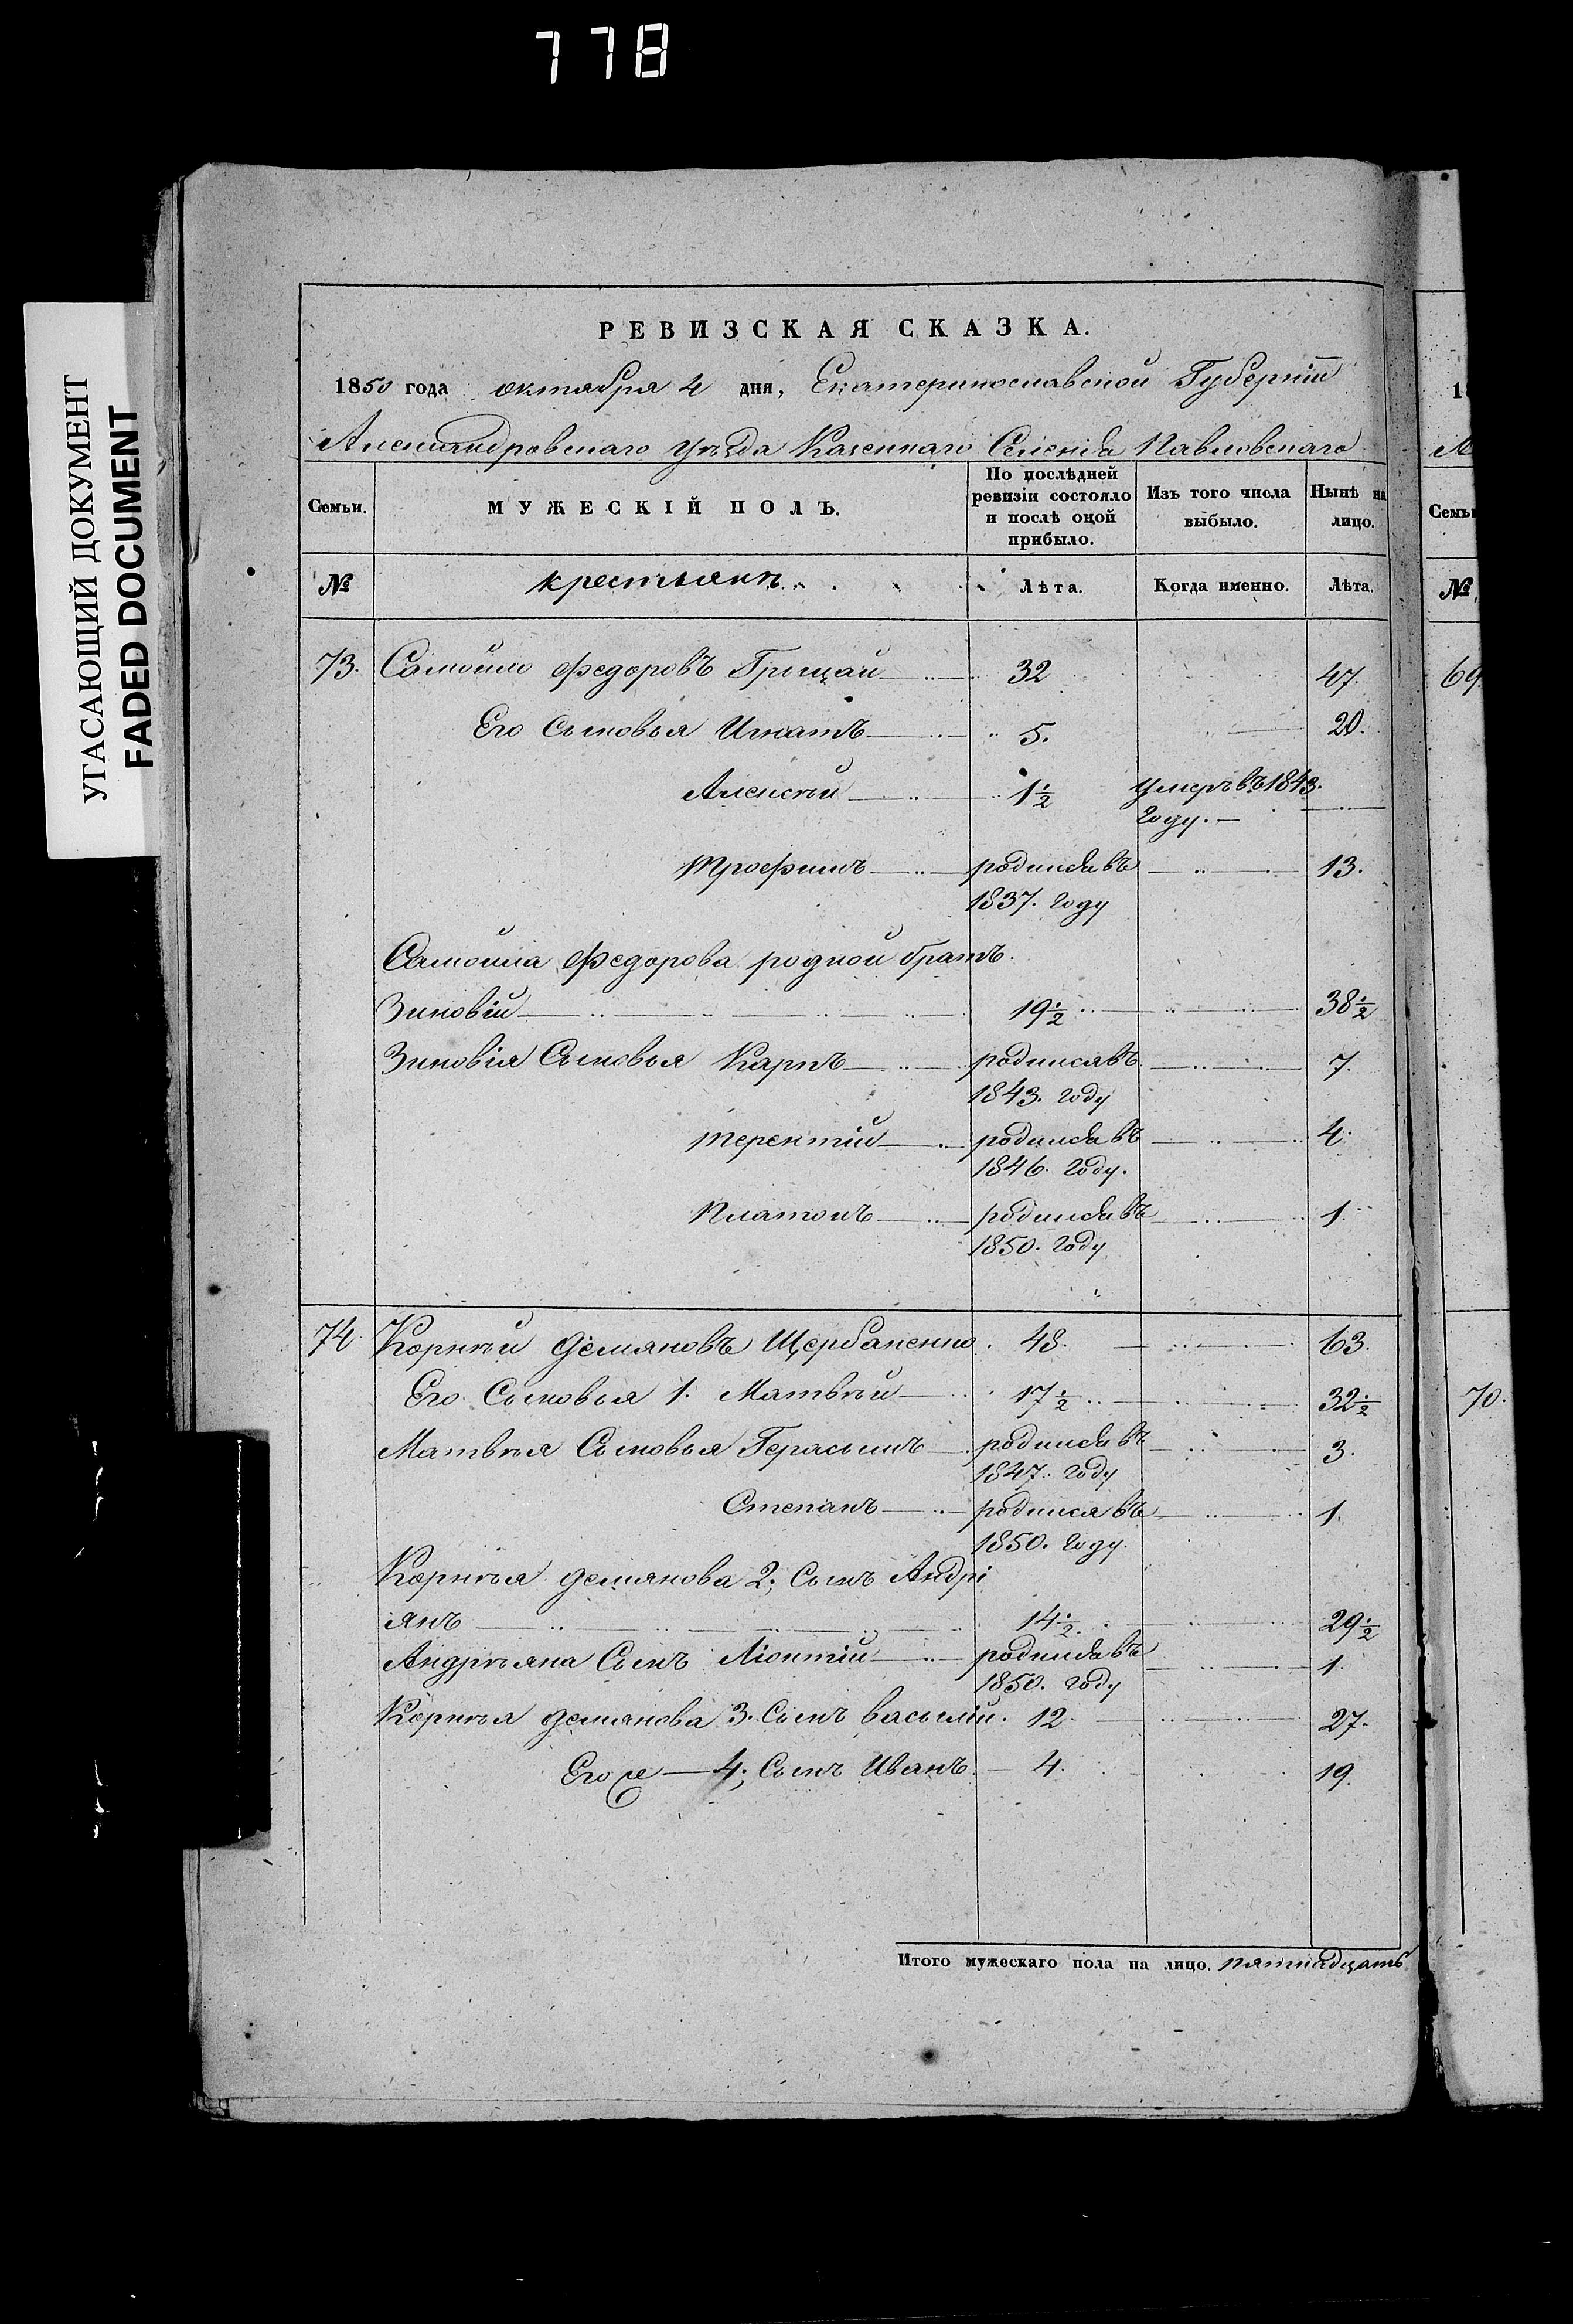 778
УГАСАЮЩИЙ ДОКУМЕНТ
FADED DOCUMENT
РЕВИЗСКАЯ СКАЗКА.
1850 года октября 4 дня, Екатеринославской Губерніи
Александровскаго уѣзда Казеннаго Селенія Павловскаго
Семьи. МУЖЕСКІЙ ПОЛЪ. По послѣдней ревизіи состояло и послѣ оной прибыло. Изъ того числа выбыло. Нынѣ на лицо.
№ крестьянъ Лѣта. Когда именно. Лѣта.
73. Самойло Федоровъ Грицай 32 47.
Его Сыновья Игнатъ 5. 20.
Алексѣй 1½ умеръ въ 1843.
году.
Трофимъ родился въ 13.
1837. году
Самойла Федорова родной братъ.
Зиновій 19½ 38½
Зиновія Сыновья Карпъ родился въ 7.
1843. году
Терентій родился въ 4.
1846. году.
Платонъ родился въ 1.
1850. году
74 Корнѣй Демяновъ Щербаненко. 48. 63.
Его Сыновья 1. Матвѣй 17½ 32½
Матвѣя Сыновья Герасымъ родился въ 3.
1847. году
Степанъ родился въ 1.
1850. году.
Корнѣя Демянова 2; Сынъ Андрі
янъ 14½ 29½
Андрѣяна Сынъ Ліонтій родился въ 1.
1850. году
Корнѣя Демянова 3. Сынъ Васылій. 12. 27.
Его же 4; Сынъ Иванъ. 4. 19.
Итого мужескаго пола на лицо. пятнадцать
18
Семьи
№
69
70.